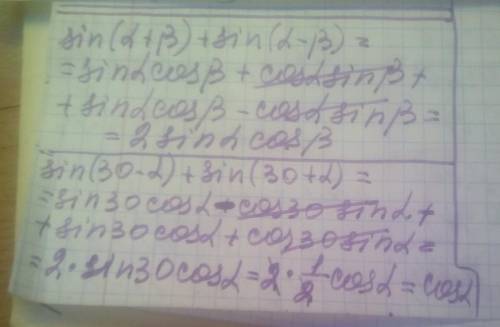 sin(α+β)+sin(α-β)=
=sinαcosβ+cosαsinβ+
+sinαcosβ-cosαsinβ=
=2sinαcosβ
sin(30-α)+sin(30+α)=
=sin30cosα-cos30sinα+
+sin30cosα+cos30sinα=
=2·sin30cosα=2·1/2cosα=cosα